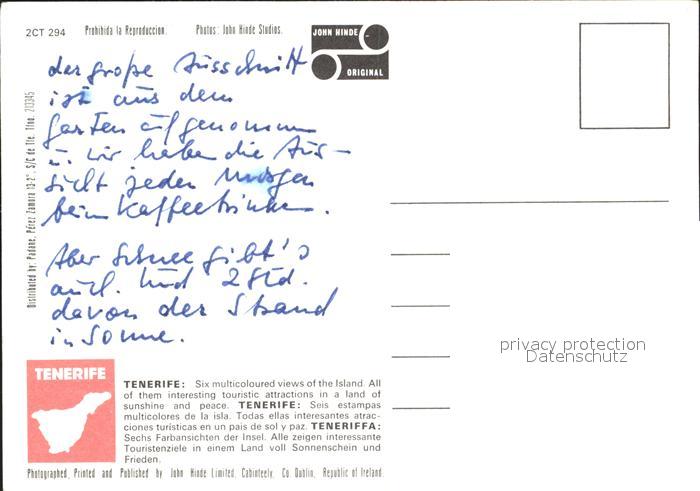 2CT 294 Prohibida la Reproduccion. Photos: John Hinde Studios.
JOHN HINDE
ORIGINAL
der große Ausschnitt
ist aus dem
Garten aufgenommen
u. wir haben die Aus-
sicht jeden Morgen
beim Kaffeetrinken.
Aber Schnee gibt's
auch. Und 2 Std.
davon der Strand
in Sonne.
Distributed by: Padane, Pérez Zamora 13-2°, S/C de Tfe. Tfno. 213345
privacy protection
Datenschutz
TENERIFE
TENERIFE: Six multicoloured views of the Island. All
of them interesting touristic attractions in a land of
sunshine and peace. TENERIFE: Seis estampas
multicolores de la isla. Todas ellas interesantes atrac-
ciones turísticas en un pais de sol y paz. TENERIFFA:
Sechs Farbansichten der Insel. Alle zeigen interessante
Touristenziele in einem Land voll Sonnenschein und
Frieden.
Photographed, Printed and Published by John Hinde Limited, Cabinteely, Co. Dublin, Republic of Ireland.